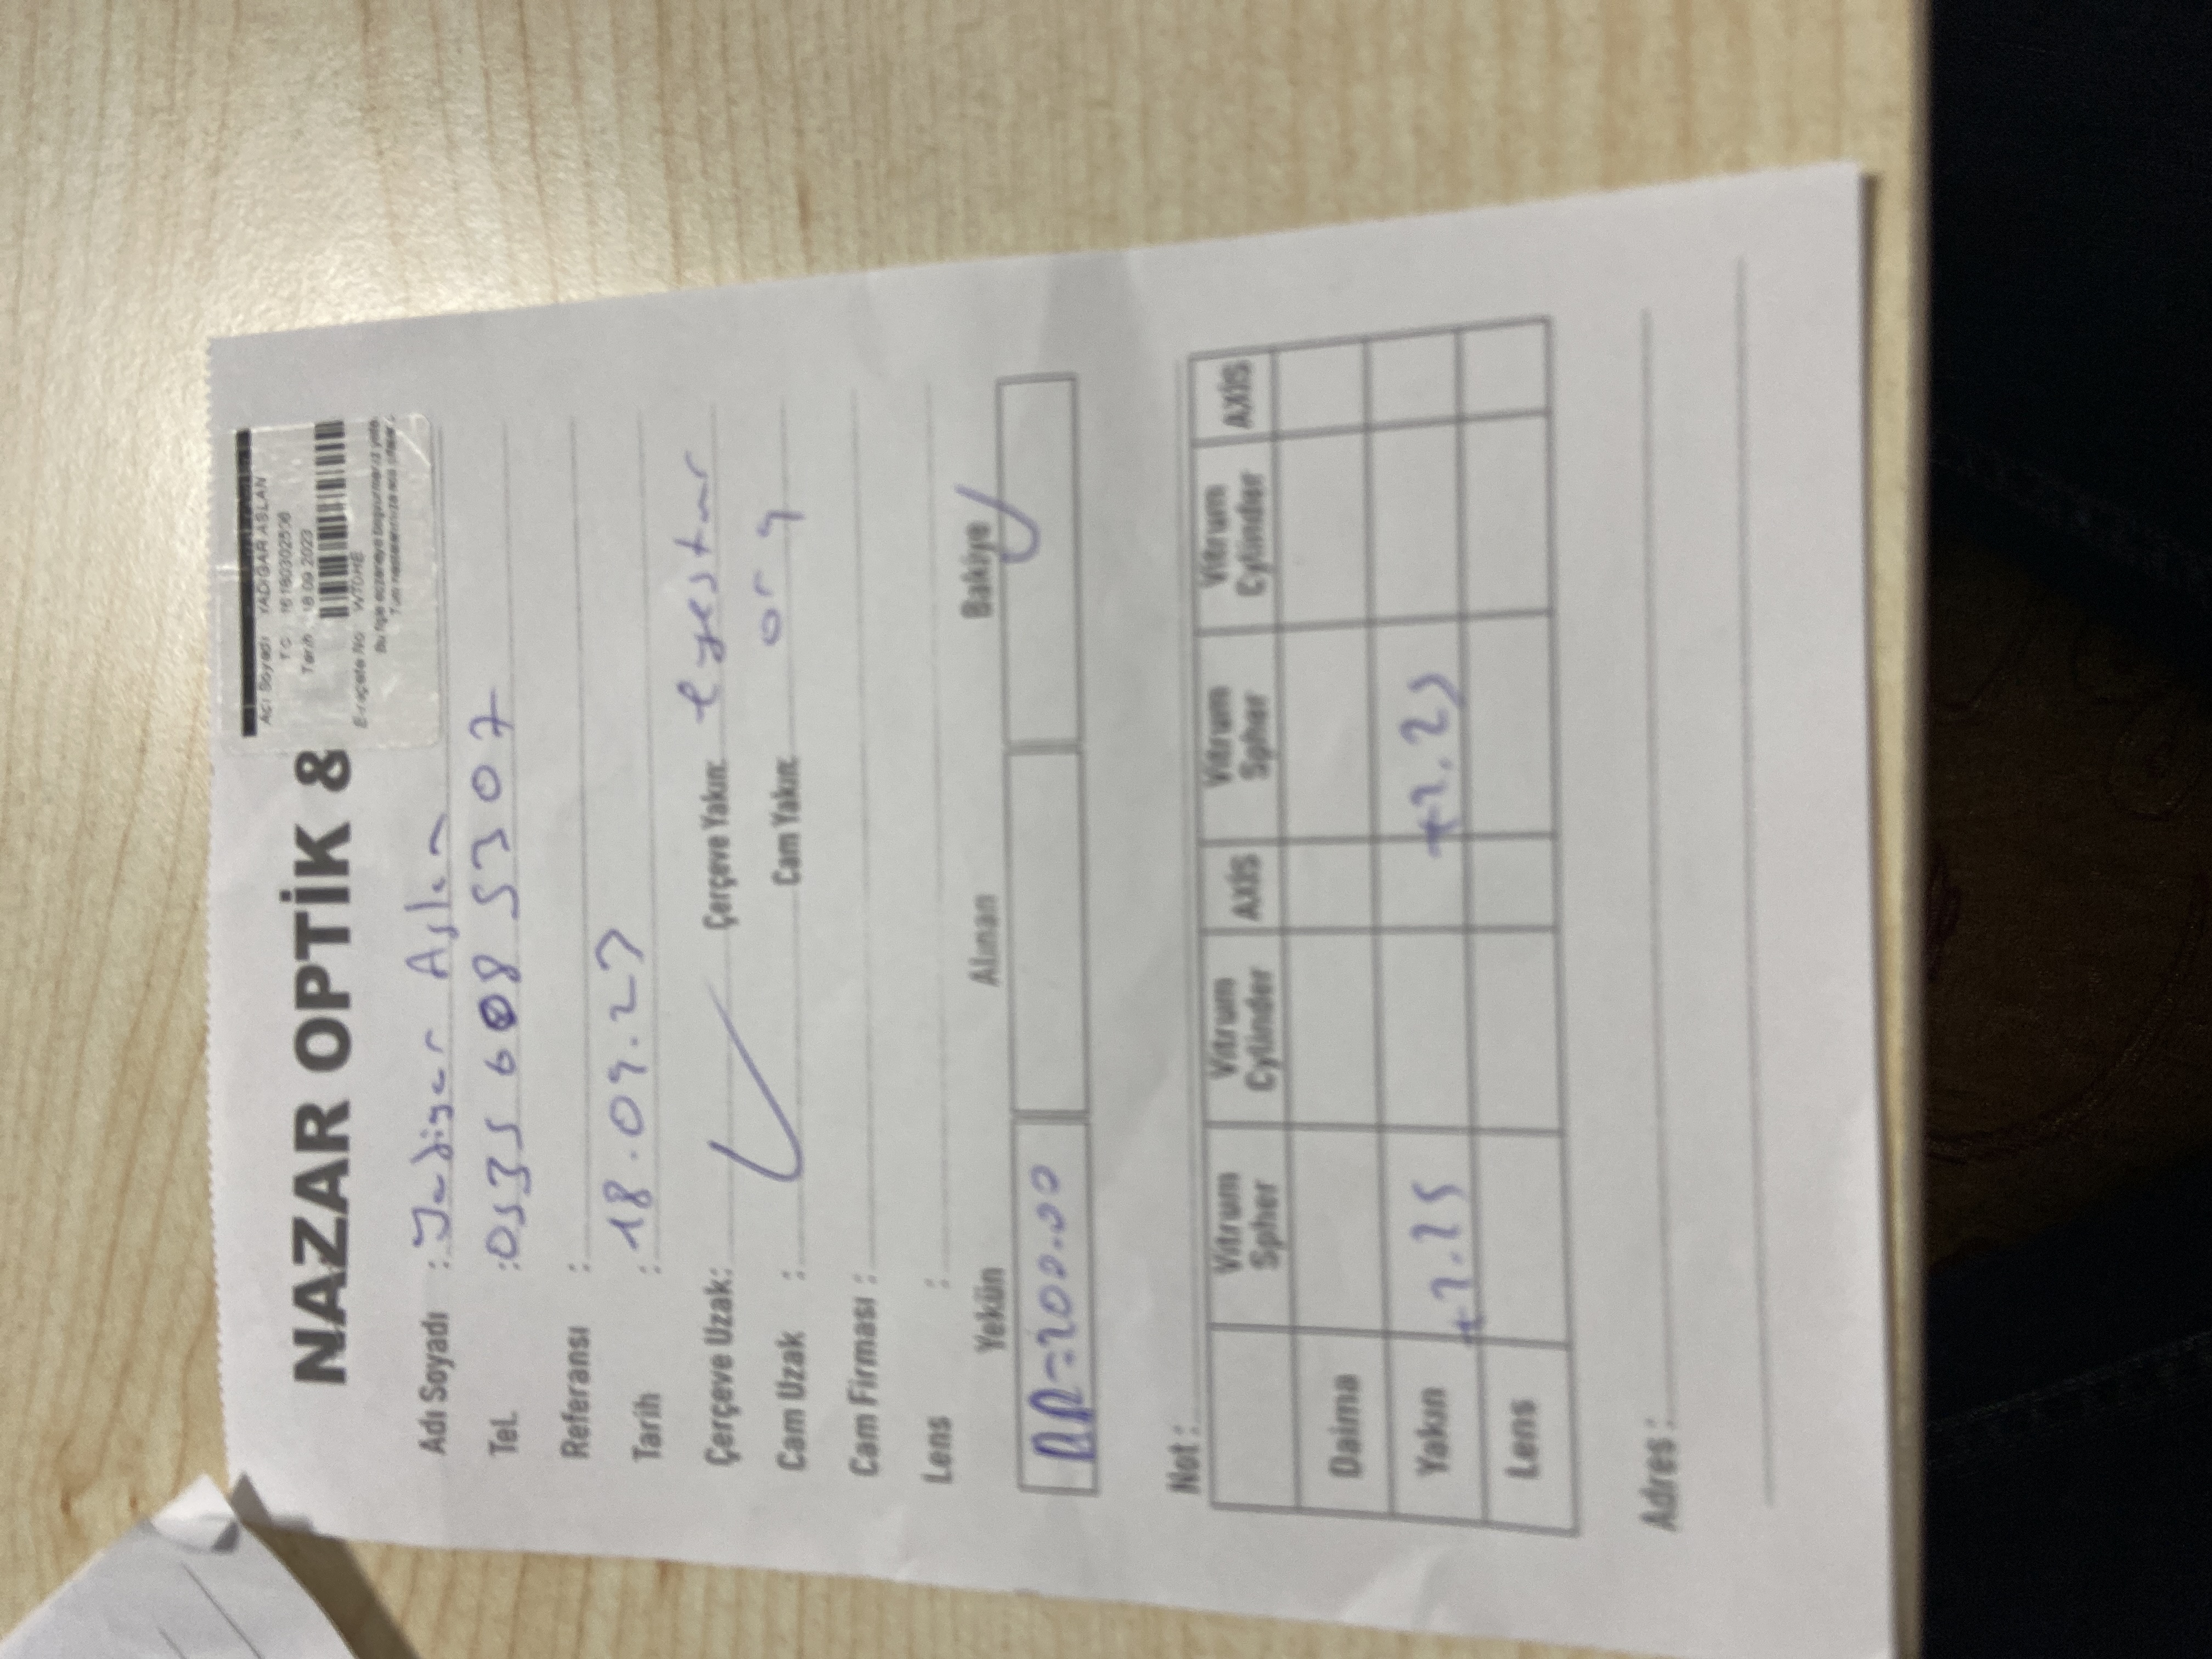 NAZAR OPTİK &
Adı Soyadı YADİGAR ASLAN
TC 16180302506
Tarih 18.09.2023
E-reçete No WT0HE
Bu fişle eczaneye başvurmanız
Adı Soyadı : Yadigar Aslan
Tel. : 0535 608 5307
Referansı :
Tarih : 18.09.23
Çerçeve Uzak: Çerçeve Yakın: eyestar
Cam Uzak : Cam Yakın: org
Cam Firması :
Lens :
Yekün Alınan Bakiye
=200.00
Not :
Vitrum Spher Vitrum Cylinder AXİS Vitrum Spher Vitrum Cylinder AXİS
Daima
Yakın +2.25 +2.25
Lens
Adres :